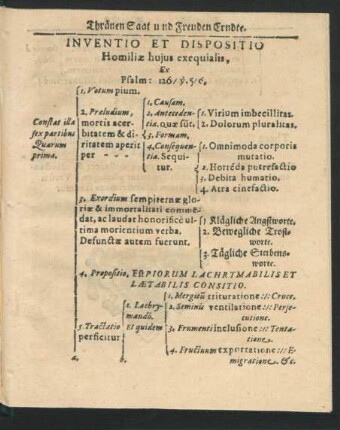 Thränen Saat und Freuden Erndte.
INVENTIO ET DISPOSITIO
Homiliæ hujus exequialis,
Ex
Psalm: 126/ỳ.5/6.
Constat illa
sex partibus
Quarum
prima.
1. Votum pium.
2. Præludium,
mortis acer-
bitatem & di-
ritatem aperit
per - - -
1. Causam,
2. Anteceden-
tia. quæ sūt.
3. Formam,
4. Consequen-
tia. Sequi-
tur.
1. Virium imbecillitas.
2. Dolorum pluralitas.
1. Omnimoda corporis
mutatio.
2. Horrēda putrefactio
3. Debita humatio.
4. Atra cinefactio.
3. Exordium sempiternæ glo-
riæ & immortalitati commē-
dat, ac laudat honorificè ul-
tima morientium verba.
Defunctæ autem fuerunt.
1. Klägliche Angstworte.
2. Bewegliche Trost-
worte.
3. Tägliche Sterbens-
worte.
4. Propositio, PIORUM LACHRYMABILIS ET
LÆTABILIS CONSITIO.
5. Tractatio
perficitur
1. Lachry-
mandō.
Et quidem
1. Mergitū trituratione ://: Cruce.
2. Seminis ventilatione ://: Perse-
cutione.
3. Frumenti inclusione ://: Tenta-
tione.
4. Fructuum exportatione ://: E-
migratione, &c.
a. b.